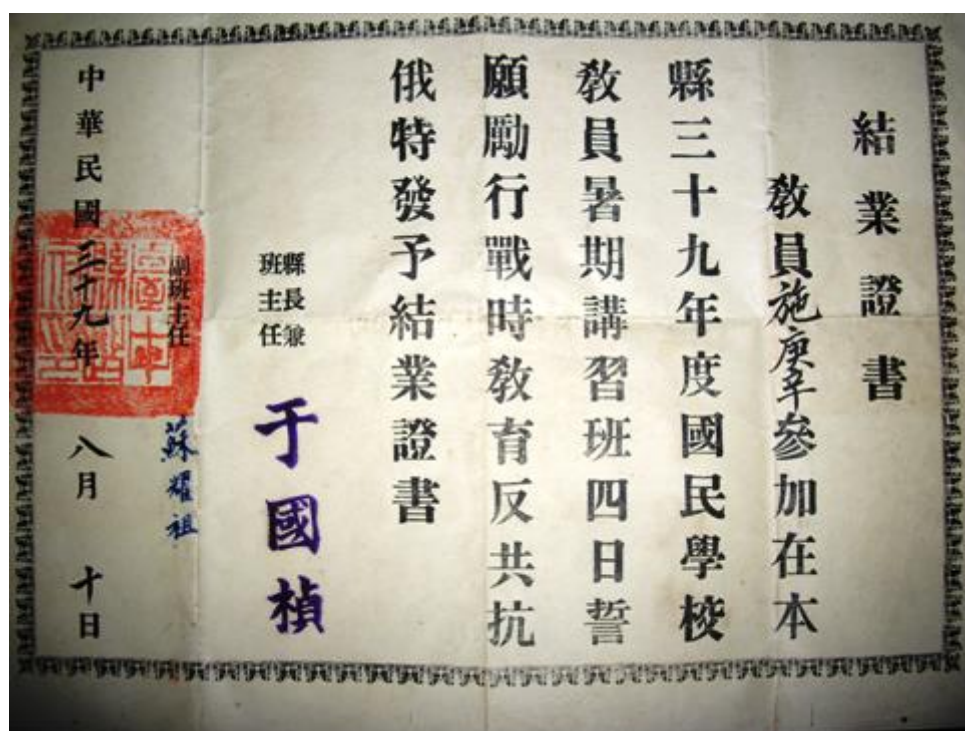 結業證書
教員施庚辛參加在本
縣三十九年度國民學校
教員暑期講習班四日誓
願勵行戰時教育反共抗
俄特發予結業證書
縣長兼
班主任
于國楨
副班主任
蘇耀祖
中華民國三十九年八月十日